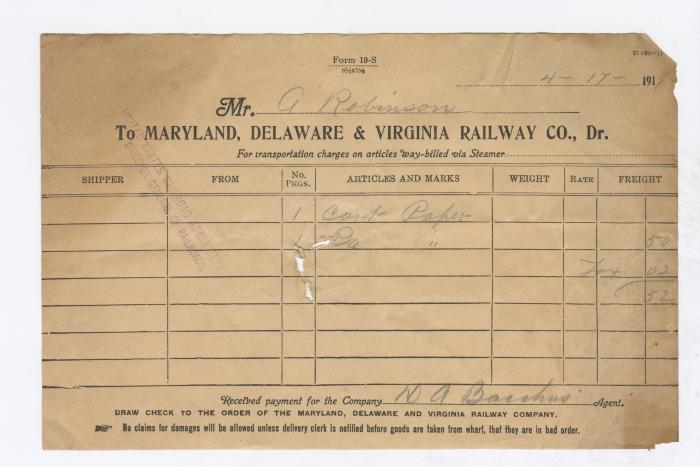 Form 19-S
8½x5½
25,000—11-
4-17- 191
Mr. A Robinson
To MARYLAND, DELAWARE & VIRGINIA RAILWAY CO., Dr.
For transportation charges on articles way-billed via Steamer
UNITED STATES RAILROAD ADMINIST
DIRECTOR GENERAL OF RAILROADS
SHIPPER FROM No. Pkgs. ARTICLES AND MARKS WEIGHT RATE FREIGHT
1 Cart Paper
1 Pa " 50
Tax 02
52
Received payment for the Company D A Bacchus Agent.
DRAW CHECK TO THE ORDER OF THE MARYLAND, DELAWARE AND VIRGINIA RAILWAY COMPANY.
No claims for damages will be allowed unless delivery clerk is notified before goods are taken from wharf, that they are in bad order.